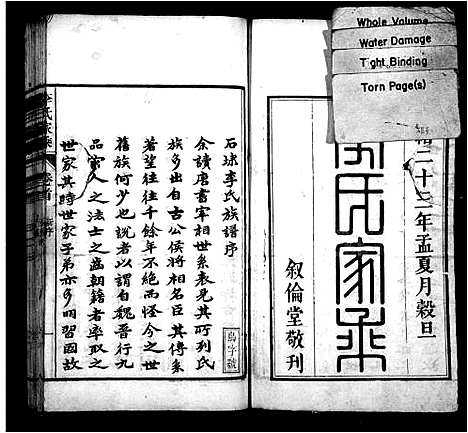 Whole Volume
Water Damage
Tight Binding
Torn Page(s)
緒二十二年孟夏月穀旦
李氏家乘
叙倫堂敬刊
石埭李氏族譜序
余讀唐書宰相世系表見其所列氏
族多出自古公侯將相名臣其傳系
著望往往千餘年不絕而怪今之世
舊族何少也說者以謂自魏晉行九
品官人之法士之齒朝籍者率取之
世家其時世家子弟亦多明習國故
李氏家乘
卷首